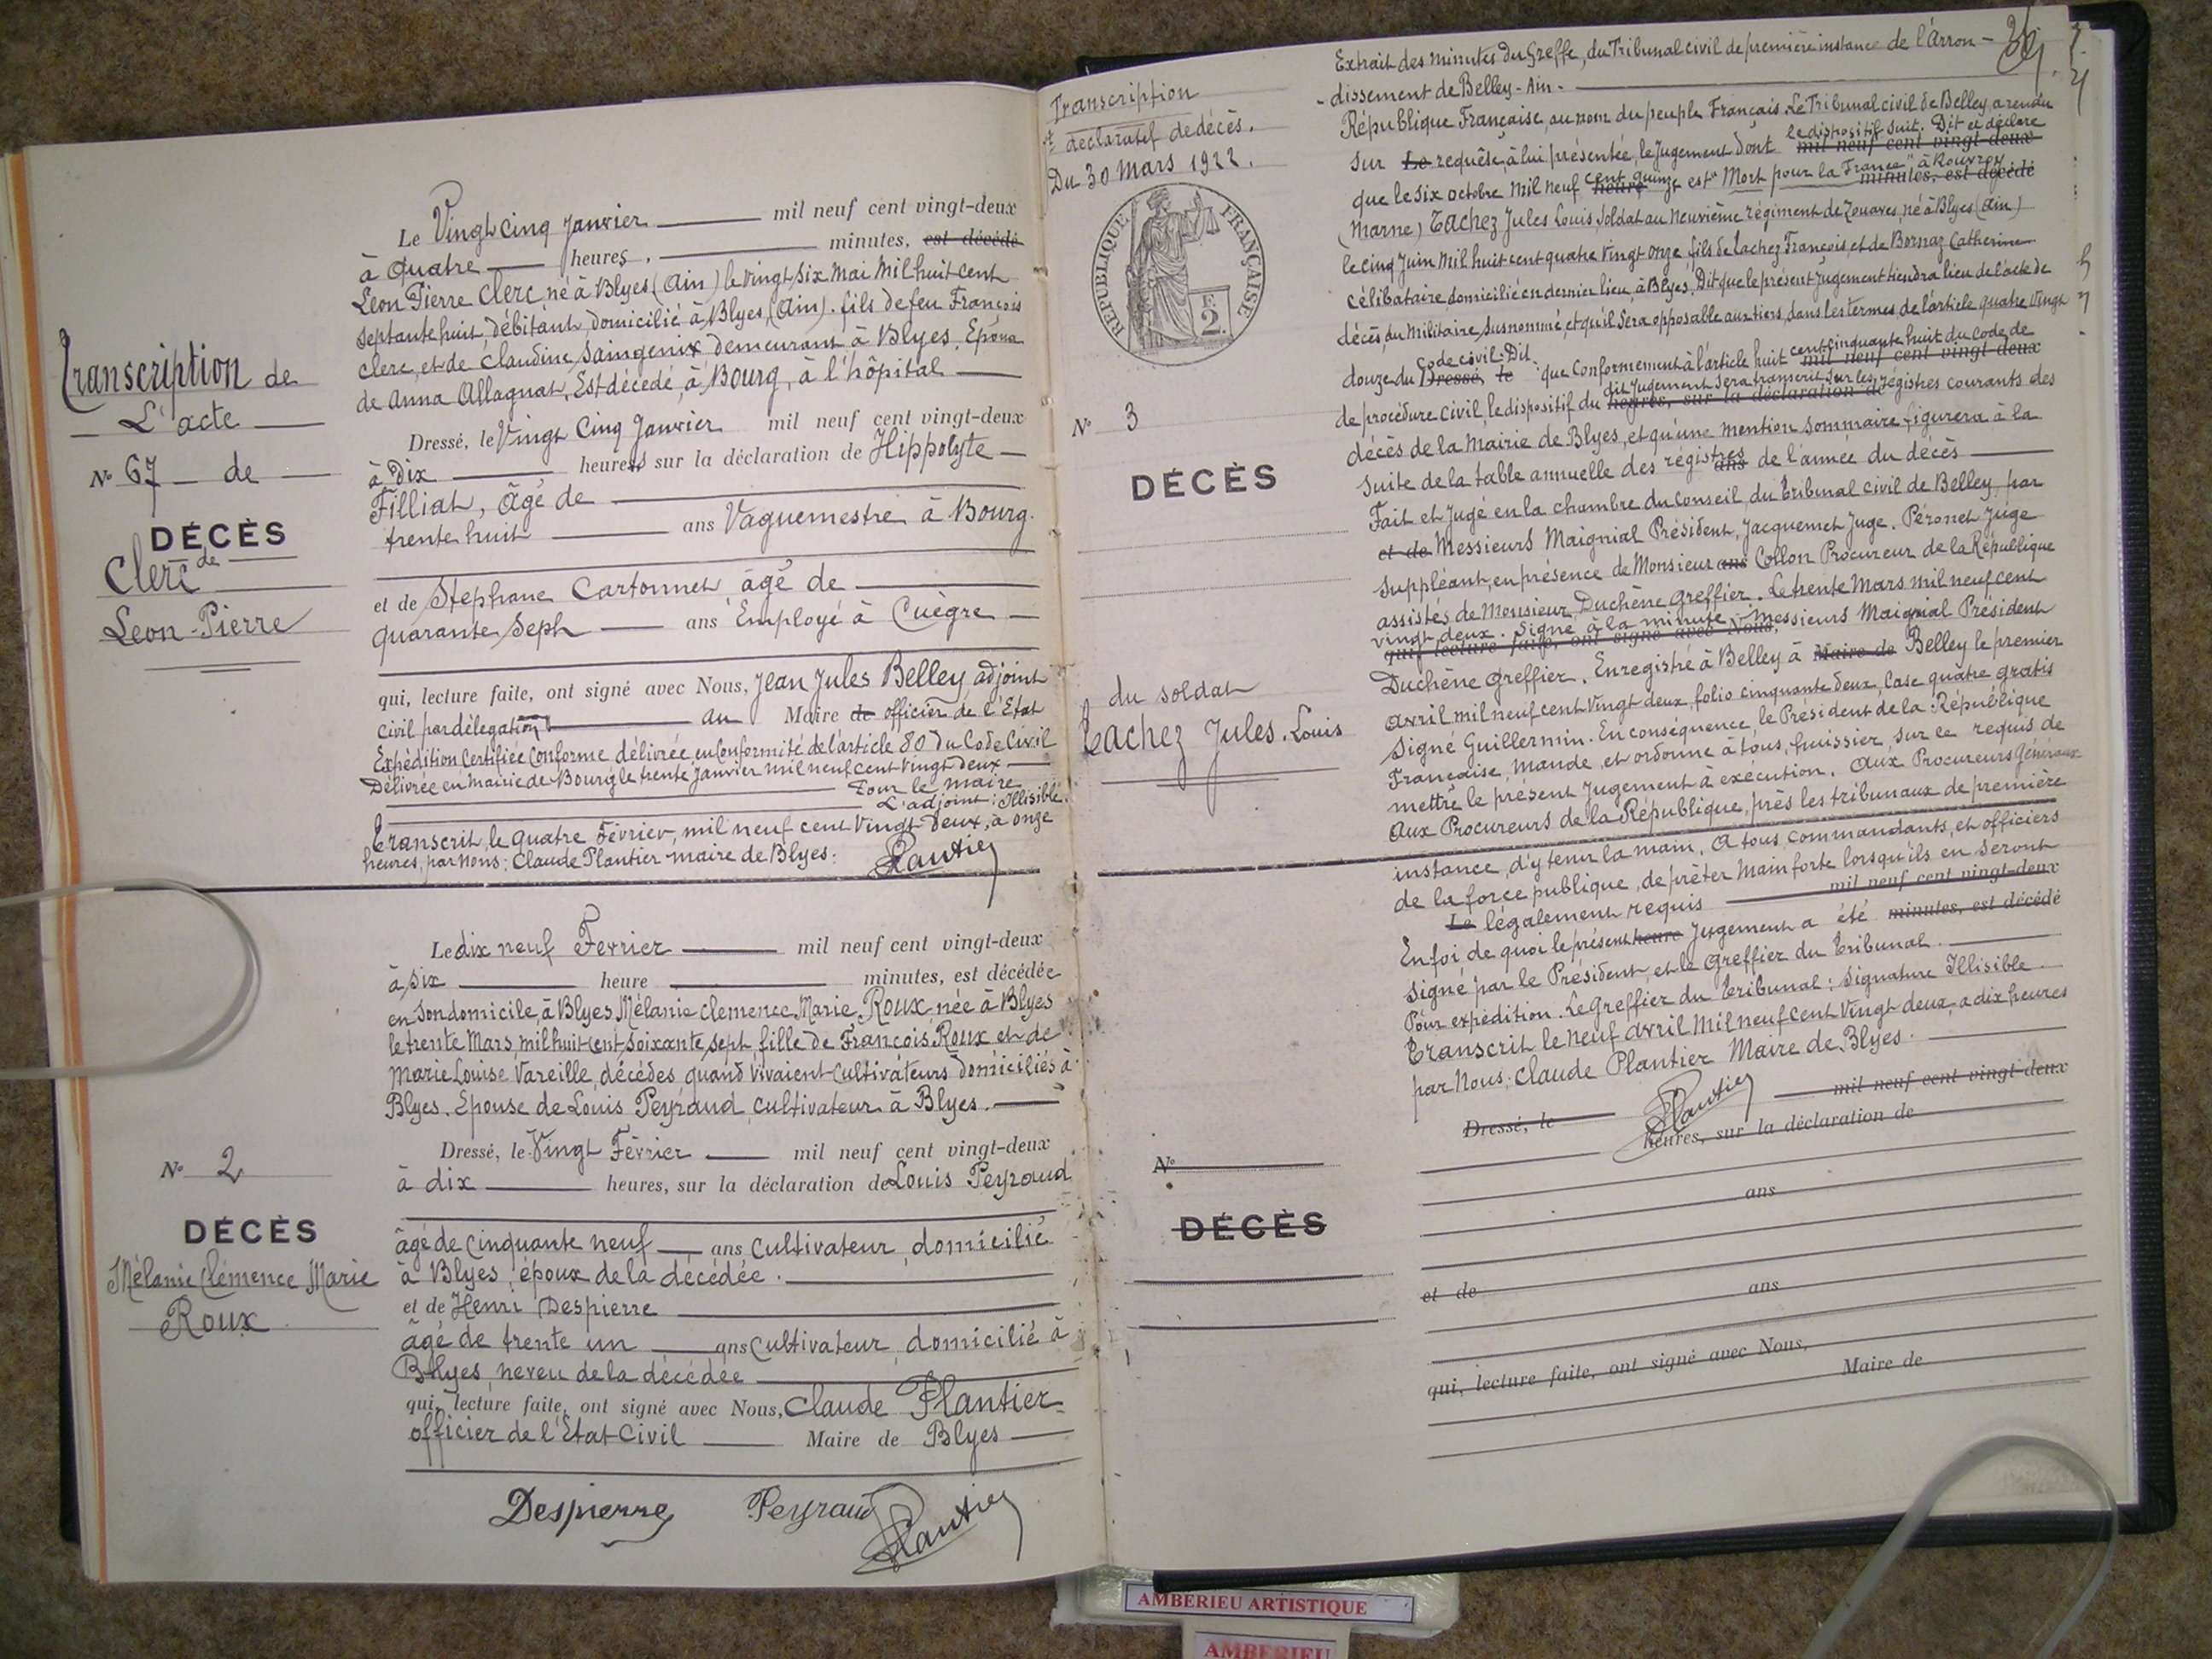 Transcription de
L'acte
N° 67 de
DÉCÈS
de
Clerc
Leon-Pierre
Le Vingt cinq Janvier mil neuf cent vingt-deux
à Quatre heures, minutes, est décédé
Léon Pierre Clerc, né à Blyes (Ain) le vingt six Mai Mil huit cent
septante huit, débitant, domicilié à Blyes, (Ain). fils de feu François
Clerc, et de Claudine Saingenix demeurant à Blyes, Epoux
de Anna Allagnat, Est décédé, à Bourg, à l'hôpital
Dressé, le Vingt Cinq Janvier mil neuf cent vingt-deux
à Dix heures sur la déclaration de Hippolyte
Filliat, âgé de
trente huit ans Vaguemestre à Bourg.
et de Stephane Cartonnet âgé de
quarante Sept ans Employé à Cuègre
qui, lecture faite, ont signé avec Nous, Jean Jules Belley, adjoint
civil par délégation au Maire de officier de l'Etat
Expédition Certifiée Conforme délivrée en Conformité de l'article 80 du Code Civil
Délivrée en Mairie de Bourg le trente Janvier mil neuf cent vingt deux
Pour le Maire
L'adjoint: Illisible.
Transcrit, le quatre Février, mil neuf cent Vingt-Deux, à onze
heures, par Nous; Claude Plantier maire de Blyes:
Plantier
N° 2
DÉCÈS
Mélanie Clémence Marie
Roux
Le dix neuf Fevrier mil neuf cent vingt-deux
à six heure minutes, est décédée
en son domicile, à Blyes, Mélanie Clemence Marie Roux née à Blyes
le trente Mars, mil huit cent soixante sept, fille de François Roux et de
Marie Louise Vareille, décédés, quand vivaient Cultivateurs domiciliés à
Blyes. Epouse de Louis Peyraud cultivateur à Blyes.
Dressé, le Vingt Février mil neuf cent vingt-deux
à dix heures, sur la déclaration de Louis Peyraud
âgé de cinquante neuf ans Cultivateur domicilié
à Blyes, époux de la décédée.
et de Henri Despierre
âgé de trente un ans Cultivateur, domicilié à
Blyes, neveu de la décédée
qui, lecture faite, ont signé avec Nous, Claude Plantier
officier de l'Etat-Civil Maire de Blyes
Despierre Peyraud Plantier
Transcription
déclaratif de décès.
Du 30 Mars 1922.
RÉPUBLIQUE FRANÇAISE
F.
2.
N° 3
DÉCÈS
du soldat
Tachez Jules. Louis
N°
DÉCÈS
Extrait des minutes du Greffe, du Tribunal civil de première instance de l'Arron-
-dissement de Belley-Ain.
République Française, au nom du peuple Français. Le Tribunal civil de Belley, a rendu
le dispositif suit. Dit et déclare
sur Le requête, à lui présentée, le Jugement dont mil neuf cent vingt-deux
cent quinze à Rouvroy
que le six octobre Mil neuf heure est "Mort pour la France" minutes, est décédé
(Marne) Tachez Jules Louis, Soldat au neuvième régiment de Zouaves, né à Blyes (Ain)
le cinq Juin Mil huit cent quatre Vingt onze, fils de Tachez François, et de Bornaz Catherine
Célibataire, domicilié en dernier lieu, à Blyes. Dit que le présent Jugement tiendra lieu de l'acte de
décès, du Militaire, susnommé, et qu'il sera opposable aux tiers, dans les termes de l'article quatre Vingt
Code civil. Dit cent cinquante huit du Code de
douze du Dressé, le que Conformement à l'article huit mil neuf cent vingt-deux
dit Jugement sera transcrit sur les
de procédure civil le dispositif du heures, sur la déclaration de régistres courants des
décès de la Mairie de Blyes, et qu'une mention sommaire figurera à la
suite de la table annuelle des régistres ans de l'année du décès
Fait et Jugé en la chambre du Conseil du Tribunal civil de Belley, par
et de Messieurs Maignial Président, Jacquemet Juge. Péronet Juge
Suppléant, en présence de Monsieur ans Collon Procureur de la République
assistés de Monsieur Duchêne Greffier. Le trente Mars mil neuf cent
vingt deux. Signé à la minute Messieurs Maignial Président
qui, lecture faite, ont signé avec Nous,
Duchêne Greffier. Enregistré à Belley à Maire de Belley le premier
Avril mil neuf cent Vingt deux, folio cinquante deux, Case quatre gratis
Signé Guillermin. En conséquence, le Président de la République
Française, Mande, et ordonne à tous, huissier, sur ce requis de
mettre le présent Jugement à exécution. Aux Procureurs Généraux
Aux Procureurs de la République, près les tribunaux de première
instance, d'y tenir la main. A tous commandants, et officiers
de la force publique, de prêter main forte lorsqu'ils en seront
Le légalement requis mil neuf cent vingt-deux
En foi de quoi le présent heure Jugement a été minutes, est décédé
Signé par le Président, et le Greffier du Tribunal.
Pour expédition. Le Greffier du Tribunal: Signature Illisible.
Transcrit le neuf Avril Mil neuf cent Vingt deux, à dix heures
par Nous, Claude Plantier Maire de Blyes.
Plantier
Dressé, le mil neuf cent vingt-deux
heures, sur la déclaration de
ans
et de ans
qui, lecture faite, ont signé avec Nous,
Maire de
AMBERIEU ARTISTIQUE
AMBERIEU